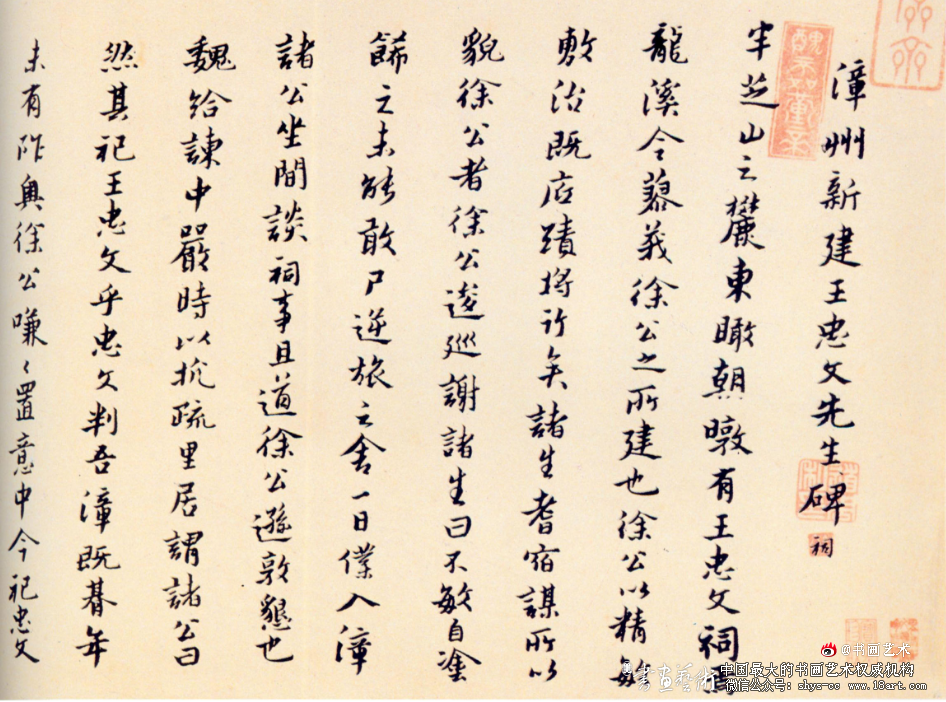 漳州新建王忠文先生碑
祠
半芝山之麓東瞰朝暾有王忠文祠
龍溪令蓼莪徐公之所建也徐公以精敏
敷治既底蹟將行矣諸生耆宿謀所以
貌徐公者徐公逡巡謝諸生曰不敏自塗
飾之未能敢尸逆旅之舍一日僕入漳
諸公坐間談祠事且道徐公遜敦懇也
魏給諫中嚴時以抗疏里居謂諸公曰
然其祀王忠文乎忠文判吾漳既朞年
未有阼與徐公嗛〻置意中今祀忠文
@书画艺术
書畫藝術
中国最大的书画艺术权威机构
微信公众号：shys-cc www.18art.com